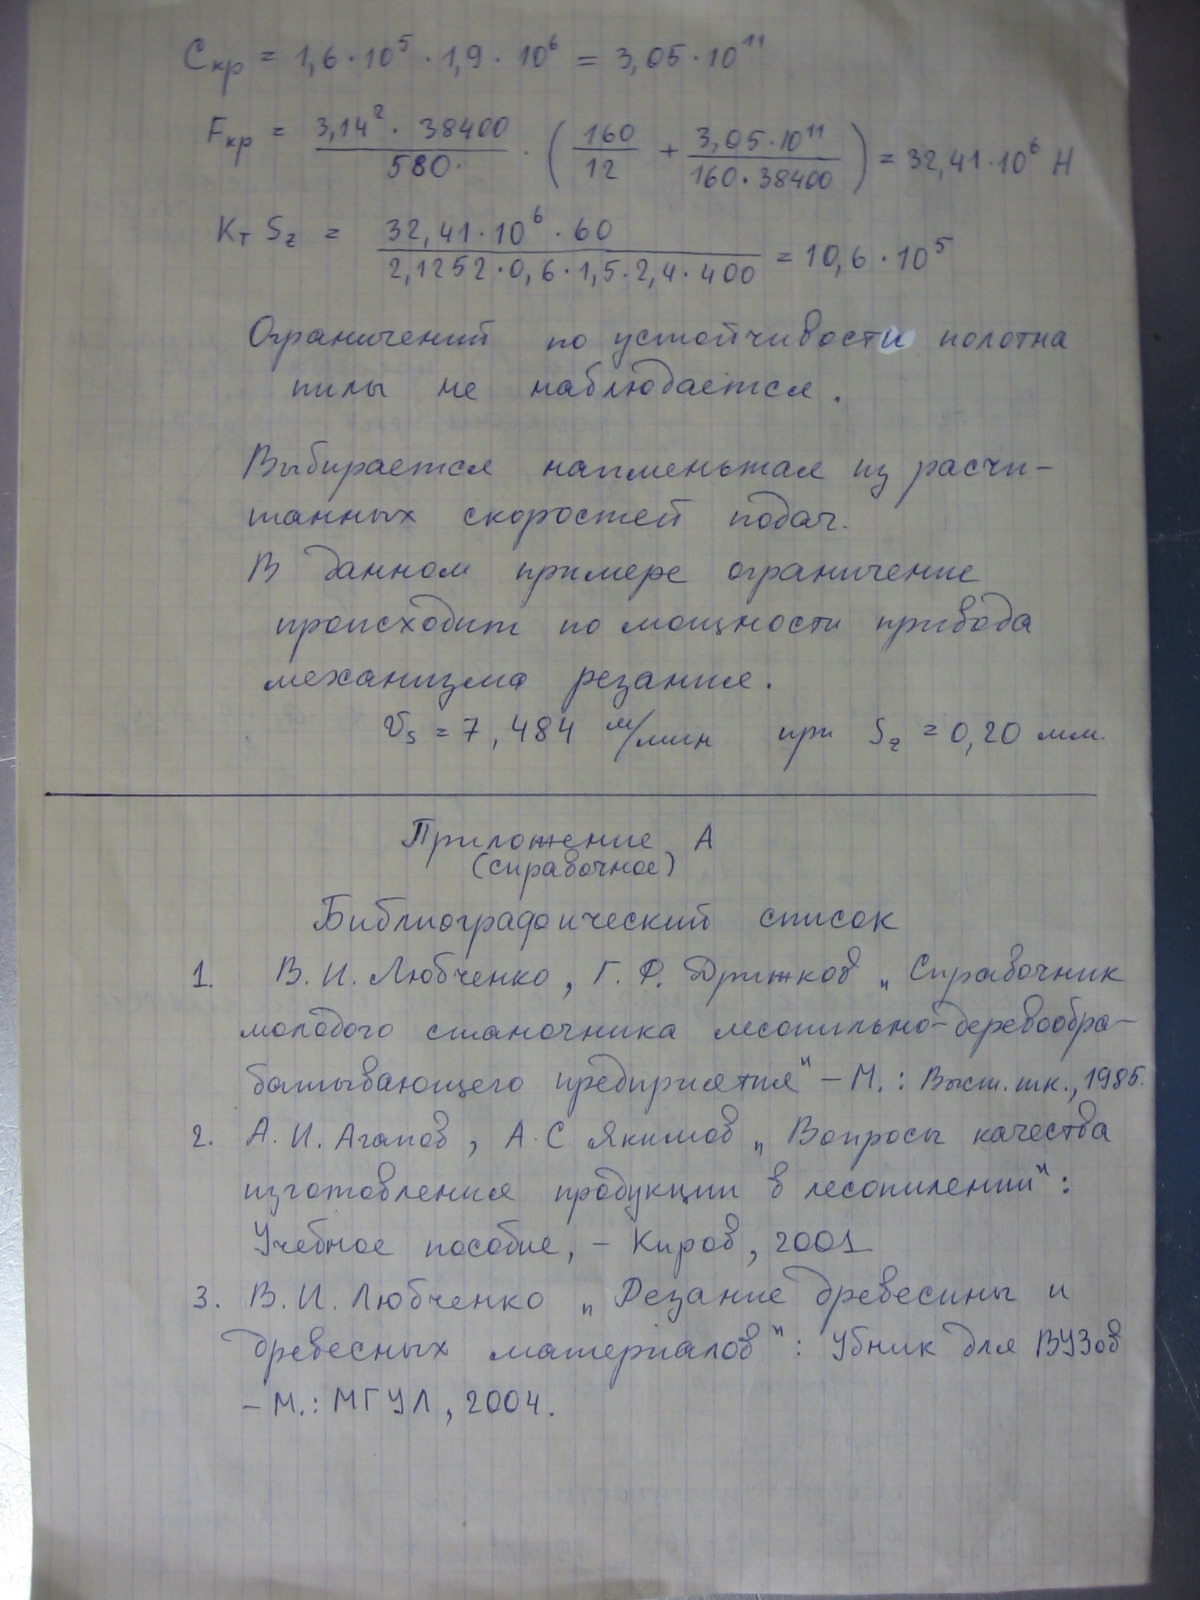 Cкр = 1,6·10⁵ · 1,9 · 10⁶ = 3,05·10¹¹
Fкр = 3,14² · 38400 / 580 · (160 / 12 + 3,05·10¹¹ / 160·38400) = 32,41·10⁶ Н
Kт Sz = 32,41·10⁶ · 60 / 2,1252·0,6·1,5·2,4·400 = 10,6·10⁵
Ограничений по устойчивости полотна
пилы не наблюдается.
Выбирается наименьшая из расчи-
танных скоростей подач.
В данном примере ограничение
происходит по мощности привода
механизма резания.
Vs = 7,484 м/мин при Sz = 0,20 мм.
Приложение А
(справочное)
Библиографический список
1. В. И. Любченко, Г. Ф. Дружков „Справочник
молодого станочника лесопильно-деревообра-
батывающего предприятия" – М.: Высш. шк., 1985.
2. А. И. Агапов, А. С Якимов „Вопросы качества
изготовления продукции в лесопилении":
Учебное пособие, – Киров, 2001
3. В. И. Любченко „Резание древесины и
древесных материалов": Убник для ВУЗов
– М.: МГУЛ, 2004.